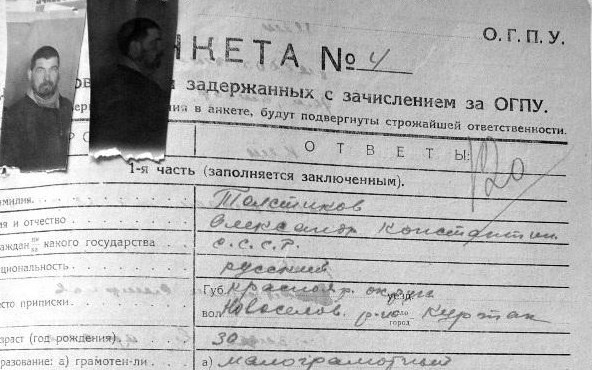 О. Г. П. У.
НКЕТА № 4
задержанных с зачислением за ОГПУ.
в анкете, будут подвергнуты строжайшей ответственности.
ОТВЕТЫ:
120
1-я часть (заполняется заключенным).
милия. Толстиков
я и отчество Александр Константин.
какого государства С.С.С.Р.
циональность русский
Губ. Краснояр. округ уезд.
сто приписки вол. Новоселов. р-на село город Куртак
раст (год рождения) 30
разование: а) грамотен-ли а) малограмотный